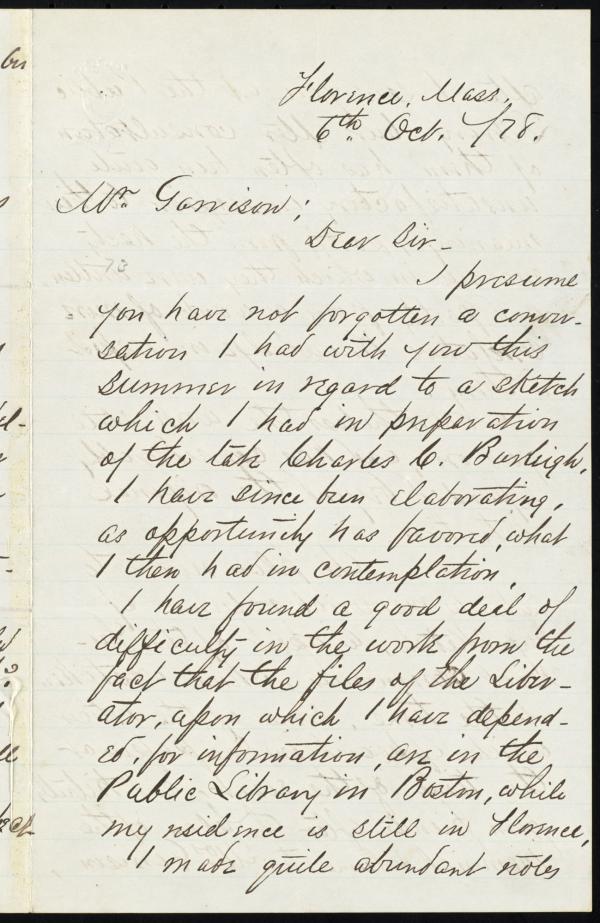 Florence, Mass.
6th Oct. /78.
Mr. Garrison;
Dear Sir -
I presume
you have not forgotten a conver-
sation I had with you this
summer in regard to a sketch
which I had in preparation
of the late Charles C. Burleigh.
I have since been elaborating,
as opportunity has favored, what
I then had in contemplation.
I have found a good deal of
difficulty in the work from the
fact that the files of The Liber-
ator, upon which I have depend-
ed, for information, are in the
Public Library in Boston, while
my residence is still in Florence.
I made quite abundant notes